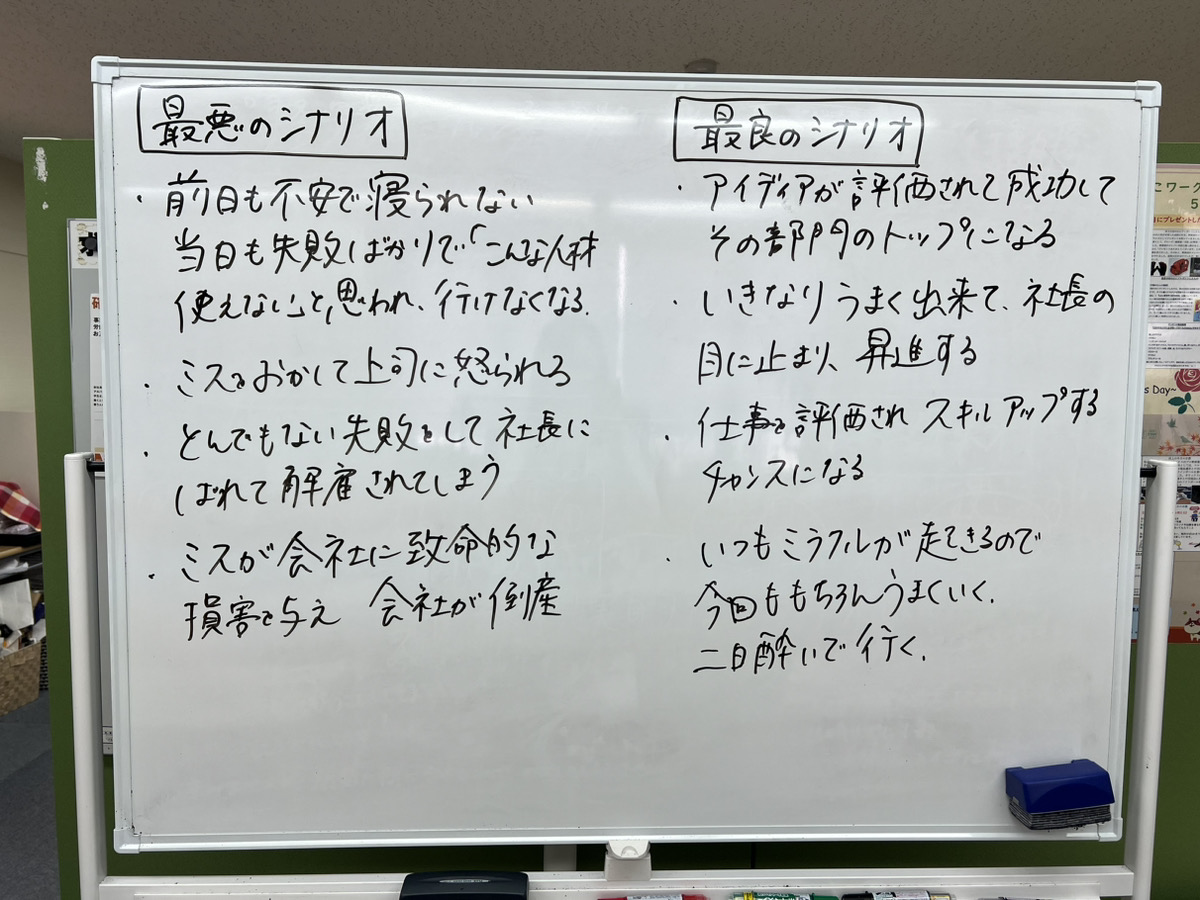 最悪のシナリオ
・前日も不安で寝られない
当日も失敗ばかりで「こんな人材
使えない」と思われ、行けなくなる.
・ミスをおかして上司に怒られる
・とんでもない失敗をして社長に
しばれて解雇されてしまう
・ミスが会社に致命的な
損害を与え 会社が倒産
最良のシナリオ
・アイディアが評価されて成功して
その部門のトップになる
・いきなりうまく出来て、社長の
目に止まり、昇進する
・仕事を評価され スキルアップする
チャンスになる
・いつもミラクルが起きるので
今回ももちろんうまくいく.
二日酔いで行く.